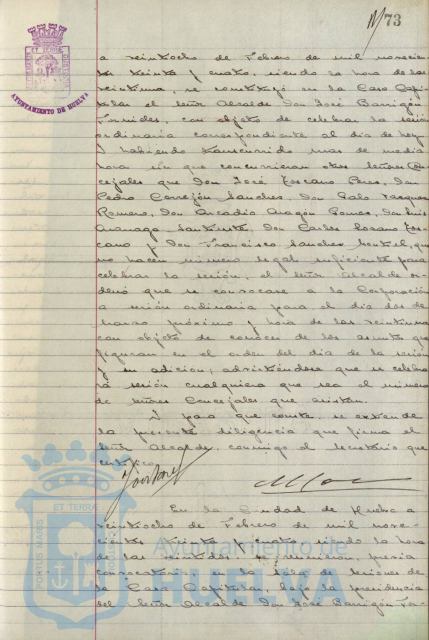 73
a veintiocho de Febrero de mil novecien-
tos treinta y cuatro, siendo la hora de las
veintiuna, se constituyó en la Casa Capi-
tular el señor Alcalde Don José Barrigón
Fornieles, con objeto de celebrar la sesión
ordinaria correspondiente al día de hoy.
Y habiendo transcurrido mas de media
hora sin que concurrieran otros señores Con-
cejales que Don José Toscano Perez, Don
Pedro Cerrejón Sanchez, Don Galo Vazquez
Romero, Don Arcadio Aragón Gomez, Don Luis
Don Carlos Lozano Tos-
cano y Don Francisco Sanchez que
no hacen número legal suficiente para
celebrar la sesión, el señor Alcalde or-
denó que se convocase a la Corporación
a sesión ordinaria para el día dos de
marzo próximo y hora de las veintiuna
con objeto de conocer de los asuntos que
figuran en el orden del día de la sesión
y su adición; advirtiéndose que se celebra-
rá sesión cualquiera que sea el número
de señores Concejales que asistan.
Y para que conste, se extiende
la presente diligencia que firma el
señor Alcalde, conmigo el Secretario que
certifico.
En la Ciudad de Huelva a
veintiocho de Febrero de mil nove-
cientos treinta y cuatro, siendo la hora
de las se reunieron, previa
convocatoria, en la Sala de sesiones de
la Casa Capitular, bajo la presidencia
del señor Alcalde Don José Barrigón For-
AYUNTAMIENTO DE HUELVA
PORTUS MARIS ET TERRAE
Ayuntamiento de
HUELVA